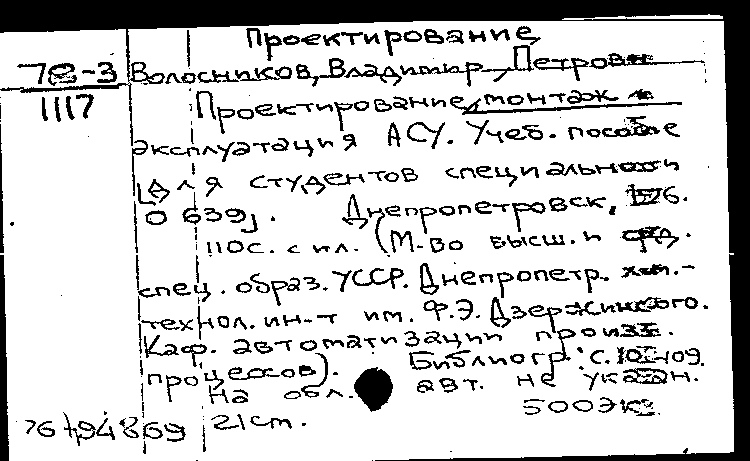 Проектирование
78-3 Волосников, Владимир Петрович
1117 Проектирование, монтаж и
эксплуатация АСУ. Учеб. пособие
[для студентов специальности
0639]. Днепропетровск, 1976.
110с. с ил. (М-во высш. и сред.
спец. образ. УССР. Днепропетр. хим.-
технол. ин-т им. Ф.Э. Дзержинского.
Каф. автоматизации произв.
процессов). Библиогр.: с.
На обл. авт. не указан.
500экз.
21см.